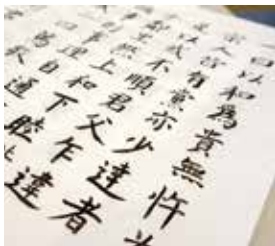 曰以和為貴無忤為
宗人皆有黨亦少達者
以或不順君父乍違
里然上和下睦
事理自通